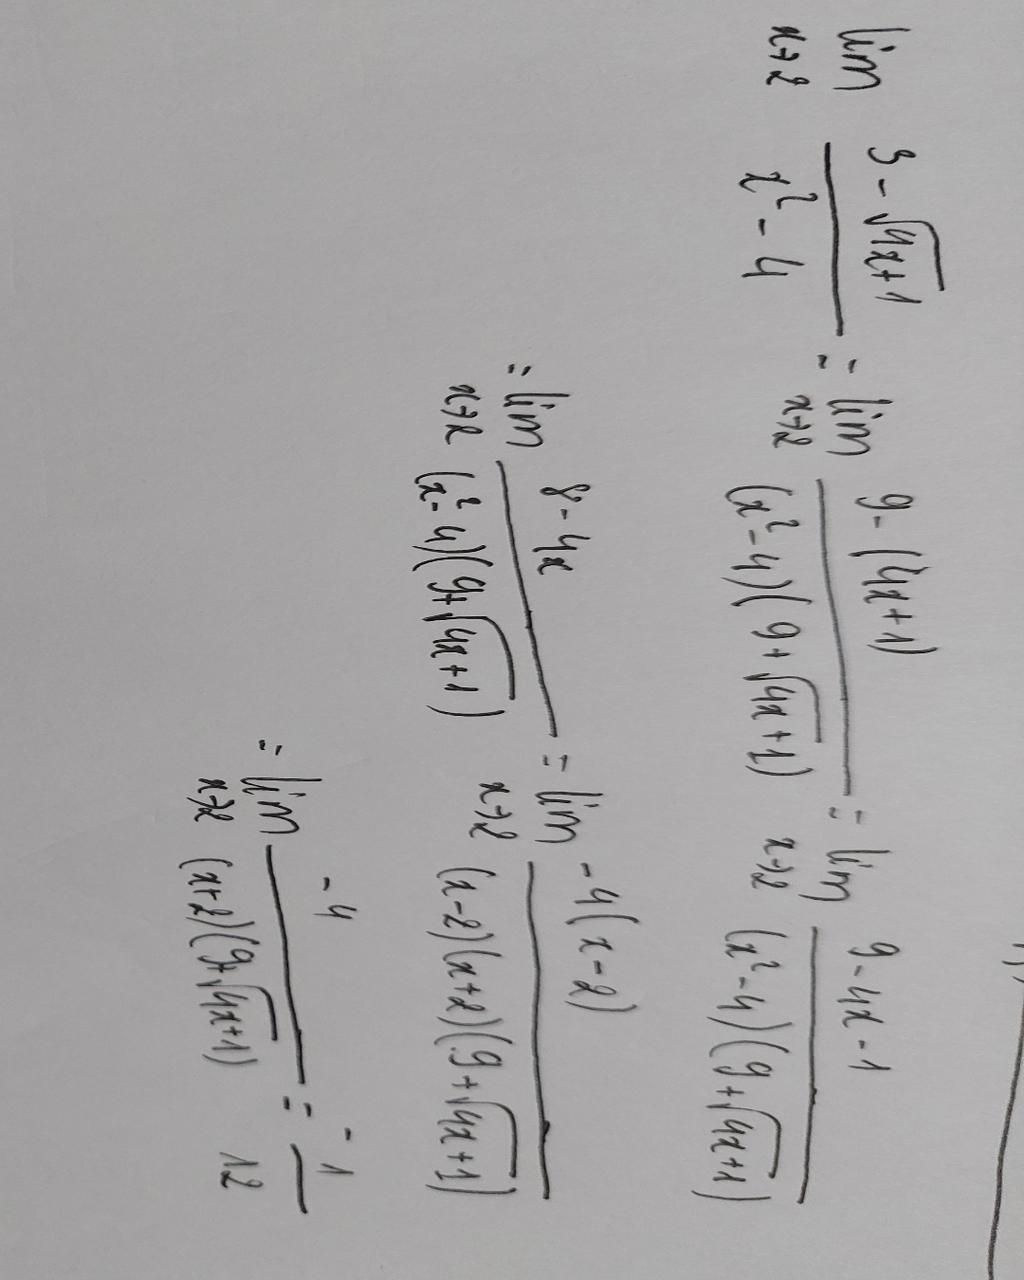 lim x→2 (3 - √(4x+1)) / (x² - 4) = lim x→2 (9 - (4x+1)) / ((x² - 4)(9 + √(4x+1))) = lim x→2 (9 - 4x - 1) / ((x² - 4)(9 + √(4x+1)))
= lim x→2 (8 - 4x) / ((x² - 4)(9 + √(4x+1))) = lim x→2 (-4(x - 2)) / ((x - 2)(x + 2)(9 + √(4x+1)))
= lim x→2 (-4) / ((x + 2)(9 + √(4x+1))) = -1 / 12